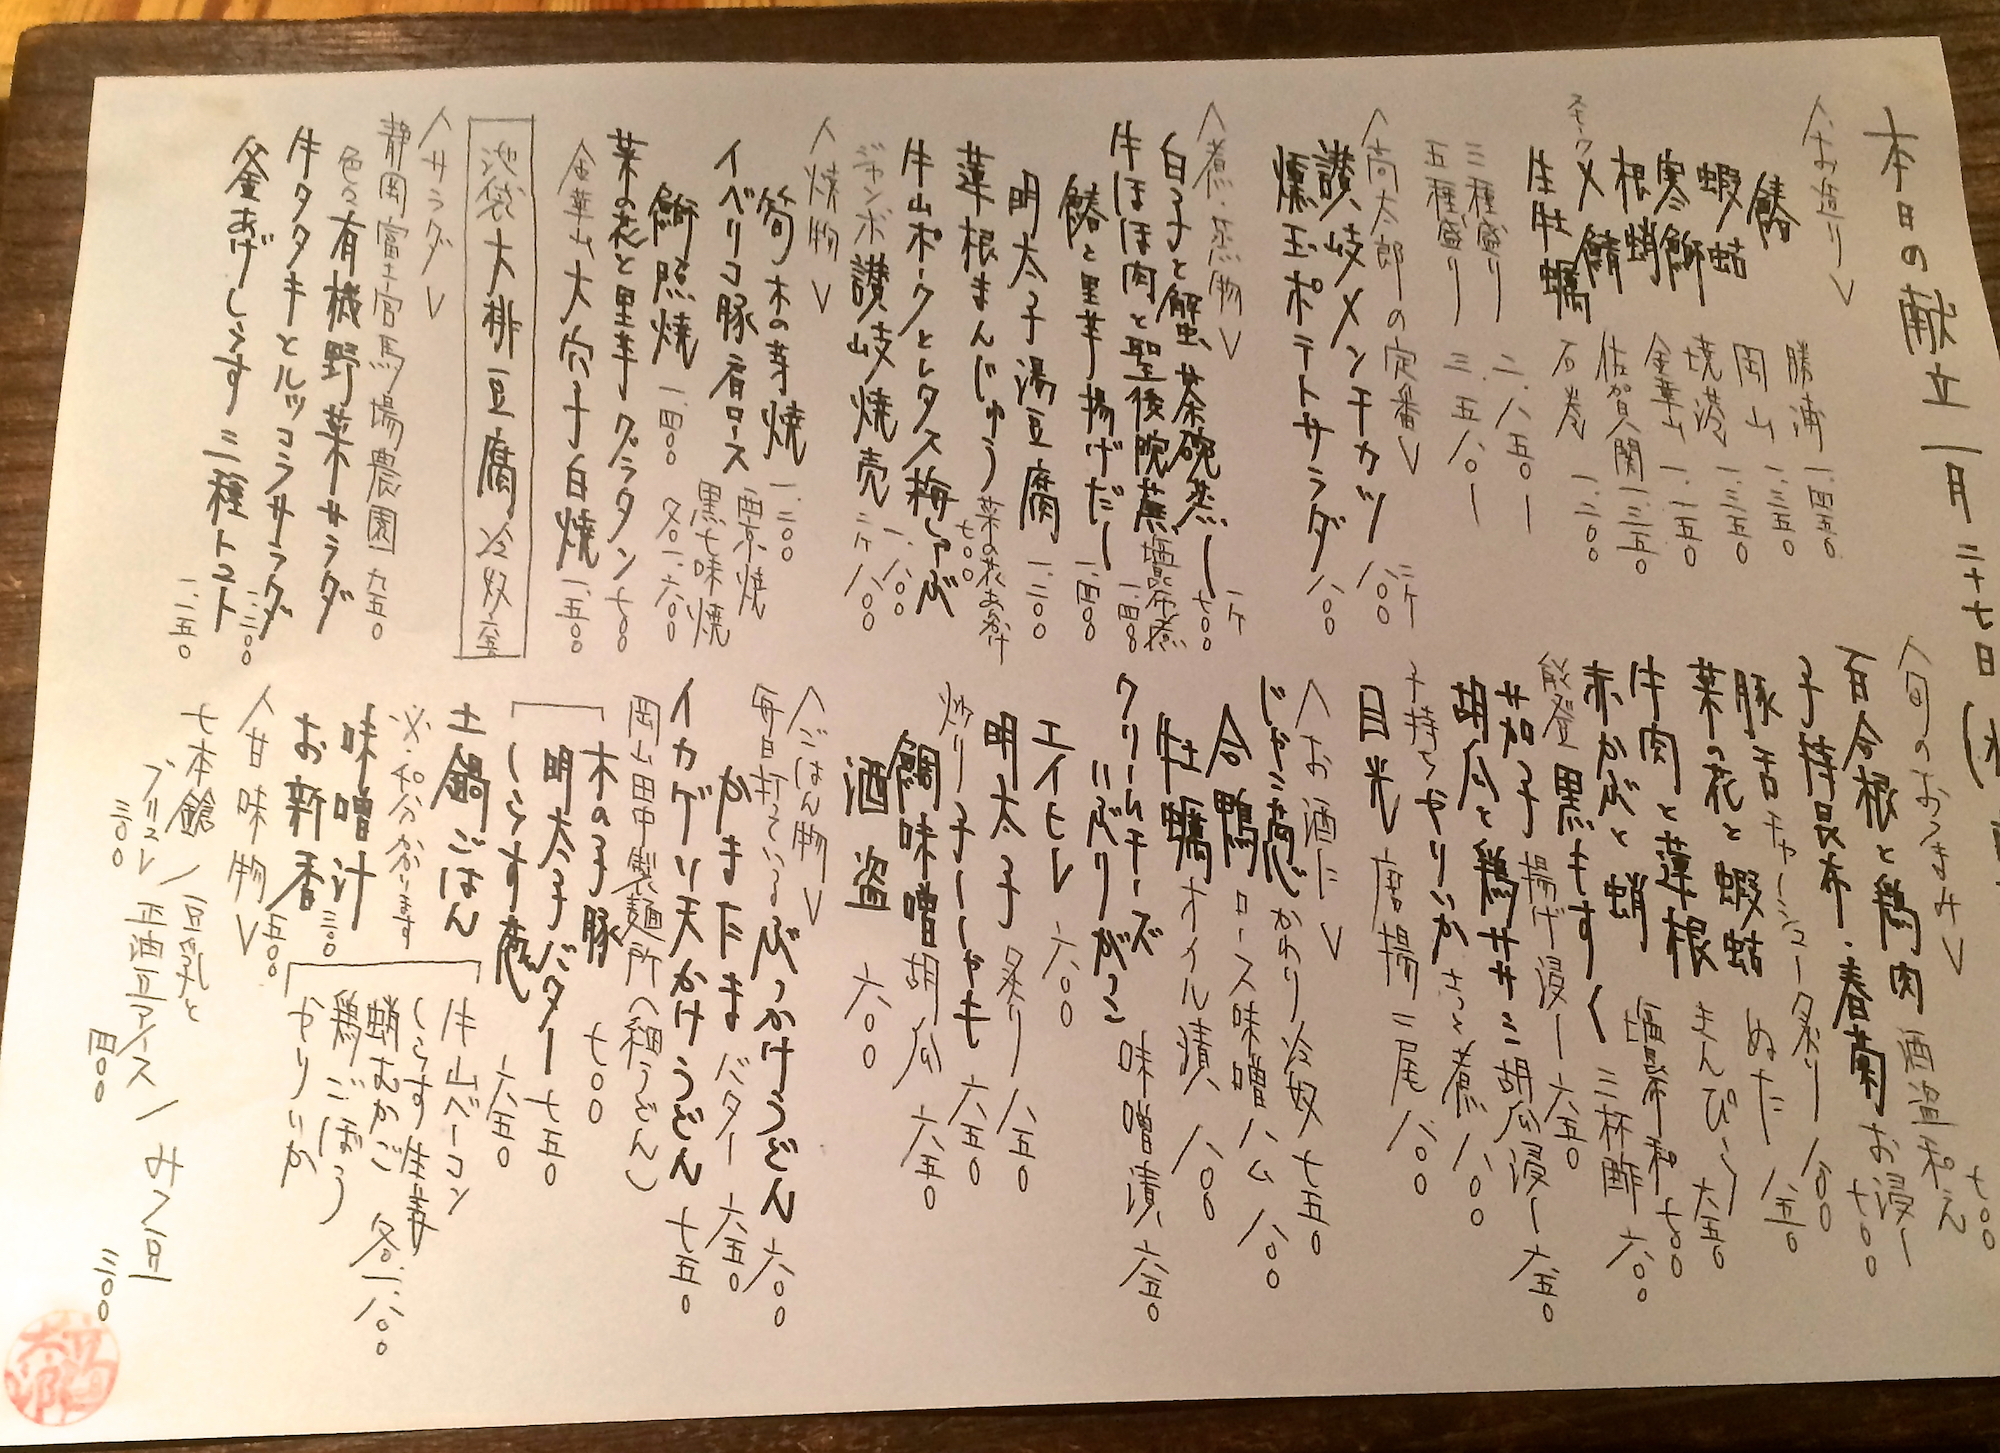 本日の献立 一月 二十七日
〈お造り〉
鰆 勝浦 一.四五〇
蝦蛄 岡山 一.三五〇
寒鰤 焼尻 一.三五〇
根蛸 金華山 一.一五〇
〆鯖 佐賀関 一.三五〇
生牡蠣 石巻 一.二〇〇
三種盛り 二.八五〇ー
五種盛り 三.五八〇ー
〈高太郎の定番〉
讃岐メンチカツ 二ケ 八〇〇
燻玉ポテトサラダ 八〇〇
〈煮・蒸物〉
白子と蟹 茶碗蒸し 一ケ 七〇〇
牛ほほ肉と聖護院蕪 塩昆布煮 一.四〇〇
鰆と里芋揚げだし 一.四〇〇
明太子湯豆腐 一.二〇〇
蓮根まんじゅう 菜の花あんかけ 七〇〇
牛山ポークとレタス梅しゃぶ 一.八〇〇
ジャンボ讃岐焼売 二ケ 八〇〇
〈焼物〉
筍木の芽焼 一.二〇〇
イベリコ豚肩ロース 西京焼 黒七味焼 各一.六〇〇
鰤照焼 一.四〇〇
菜の花と里芋グラタン 七〇〇
金華山 大穴子白焼 一.五〇〇
池袋大桃豆腐 冷奴 六〇〇
〈サラダ〉
静岡富士宮馬場農園
色々有機野菜サラダ 九五〇
牛タタキとルッコラサラダ 一.二〇〇
釜あげしらす 三種トマト 一.一五〇
〈旬のおつまみ〉
百合根と鶏肉 酒盗和え 七〇〇
子持昆布・春菊お浸し 七〇〇
豚舌チャーシュー炙り 八〇〇
菜の花と蝦蛄 ぬた 八五〇
牛肉と蓮根 きんぴら 六五〇
赤かぶと蛸 塩昆布和 七〇〇
能登 黒もずく 三杯酢 六〇〇
茄子 揚げ浸し 六五〇
胡瓜と鶏ササミ 胡瓜浸し 六五〇
子持ちやりいか さっと煮 八〇〇
目光 唐揚 三尾 八〇〇
〈お酒に〉
じゃこ葱 かわり冷奴 七五〇
合鴨 ロース味噌ハム 八〇〇
牡蠣 オイル漬 八〇〇
クリームチーズ いぶりがっこ 味噌漬 六五〇
エイヒレ 六〇〇
明太子 炙り 八五〇
炒り子ししゃも 六五〇
鯛味噌 胡瓜 六五〇
酒盗 六〇〇
〈ごはん物〉
毎日打っている ぶっかけうどん 六〇〇
かまたまバター 六五〇
イカゲソ天かけうどん 七五〇
岡山田中製麺所〈細うどん〉
木の子豚 七〇〇
明太子バター 七五〇
しらす葱 六五〇
土鍋ごはん
牛山ベーコン
しらす生姜
蛸むかご
鶏ごぼう
やりいか
各一.八〇〇
味噌汁 三〇〇
お新香 五〇〇
〈甘味物〉
七本鎗/豆乳と玉酒可マース/みつ豆
ブリュレ
三〇〇
四〇〇
三〇〇